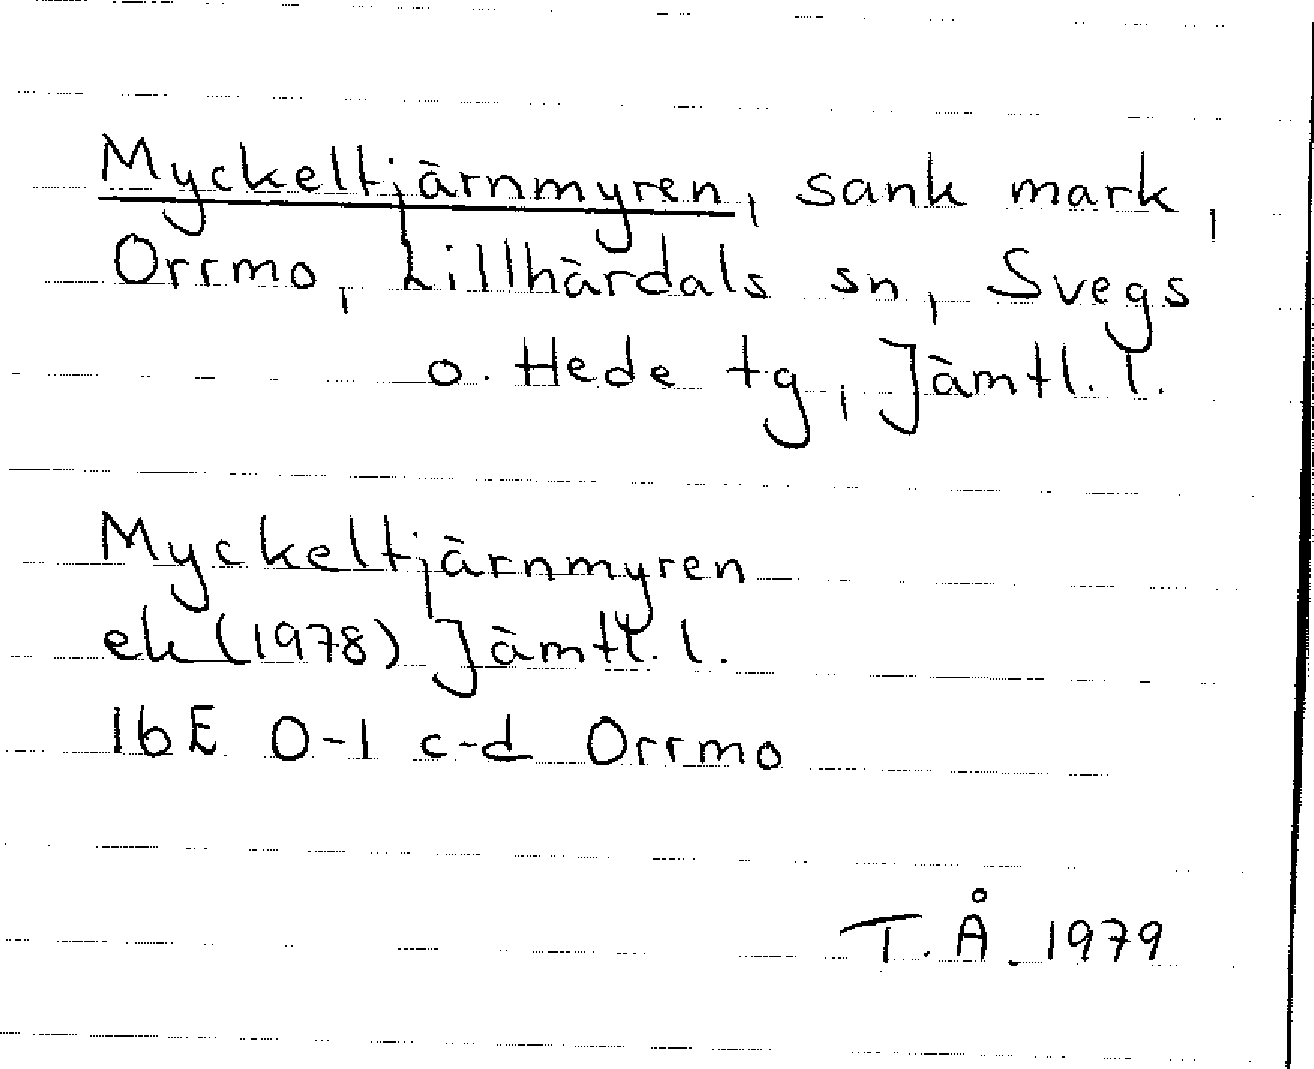 Myckeltjärnmyren, sank mark,
Orrmo, Lillhärdals sn, Svegs
o. Hede tg, Jämtl. l.
Myckeltjärnmyren
ek (1978) Jämtl. l.
16E 0-1 c-d Orrmo
T. Å. 1979